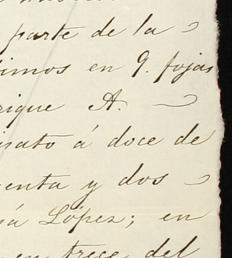 parte de la
timos en 9. fojas
rique A.
á doce de
enta y dos
López; en
trece del